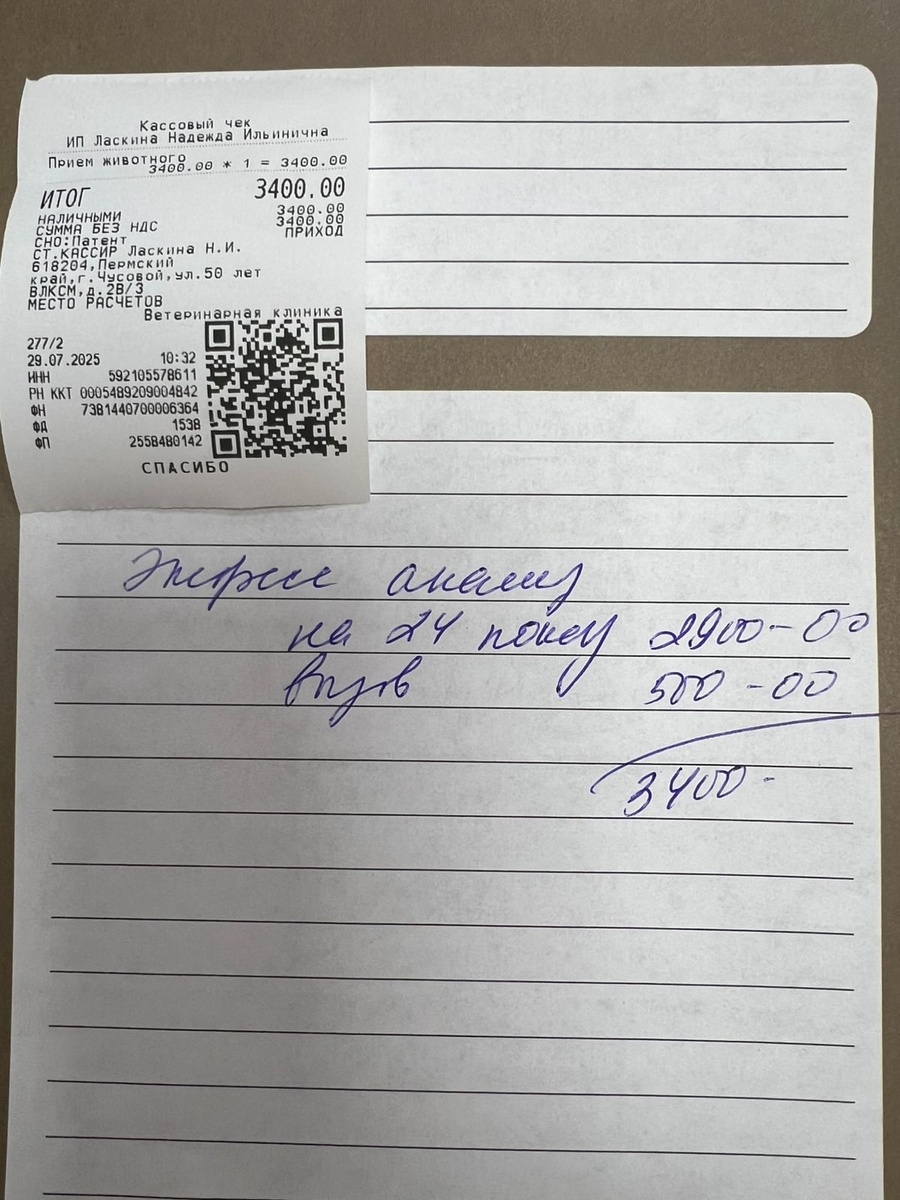 Кассовый чек
ИП Ласкина Надежда Ильинична
Прием животного
3400.00 * 1 = 3400.00
ИТОГ 3400.00
НАЛИЧНЫМИ 3400.00
СУММА БЕЗ НДС 3400.00
СНО:Патент ПРИХОД
СТ.КАССИР Ласкина Н.И.
618204,Пермский
край,г.Чусовой,ул.50 лет
ВЛКСМ,д.2В/3
МЕСТО РАСЧЕТОВ
Ветеринарная клиника
277/2
29.07.2025 10:32
ИНН 592105578611
РН ККТ 0005489209004842
ФН 7381440700006364
ФД 1538
ФП 2558480142
СПАСИБО
Экспресс анализ
на 24 показ 2900-00
вызов 500-00
3400-